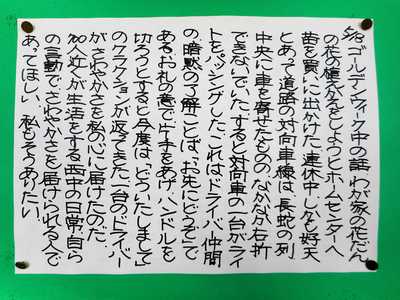 5/8 ゴールデンウィーク中の話。わが家の花だん
の花の植えかえをしようとホームセンターへ
苗を買いに出かけた。連休中、しかも好天
とあって道路の対向車線は長蛇の列
中央に車を寄せたものの、なかなか右折
できないでいた。すると対向車の一台がライ
トをパッシングした。これはドライバー仲間
の暗黙の了解ことば「お先にどうぞ」で
ある。お礼の意で片手をあげ、ハンドルを
切ろうとすると今度は、「どういたしまして」
のクラクションが返ってきた。一台のドライバー
がさわやかさを私の心に届けたのだ。
人近くが生活をする西中の日常、自ら
の言動でさわやかさを届けられる人で
あってほしい。私もそうありたい。